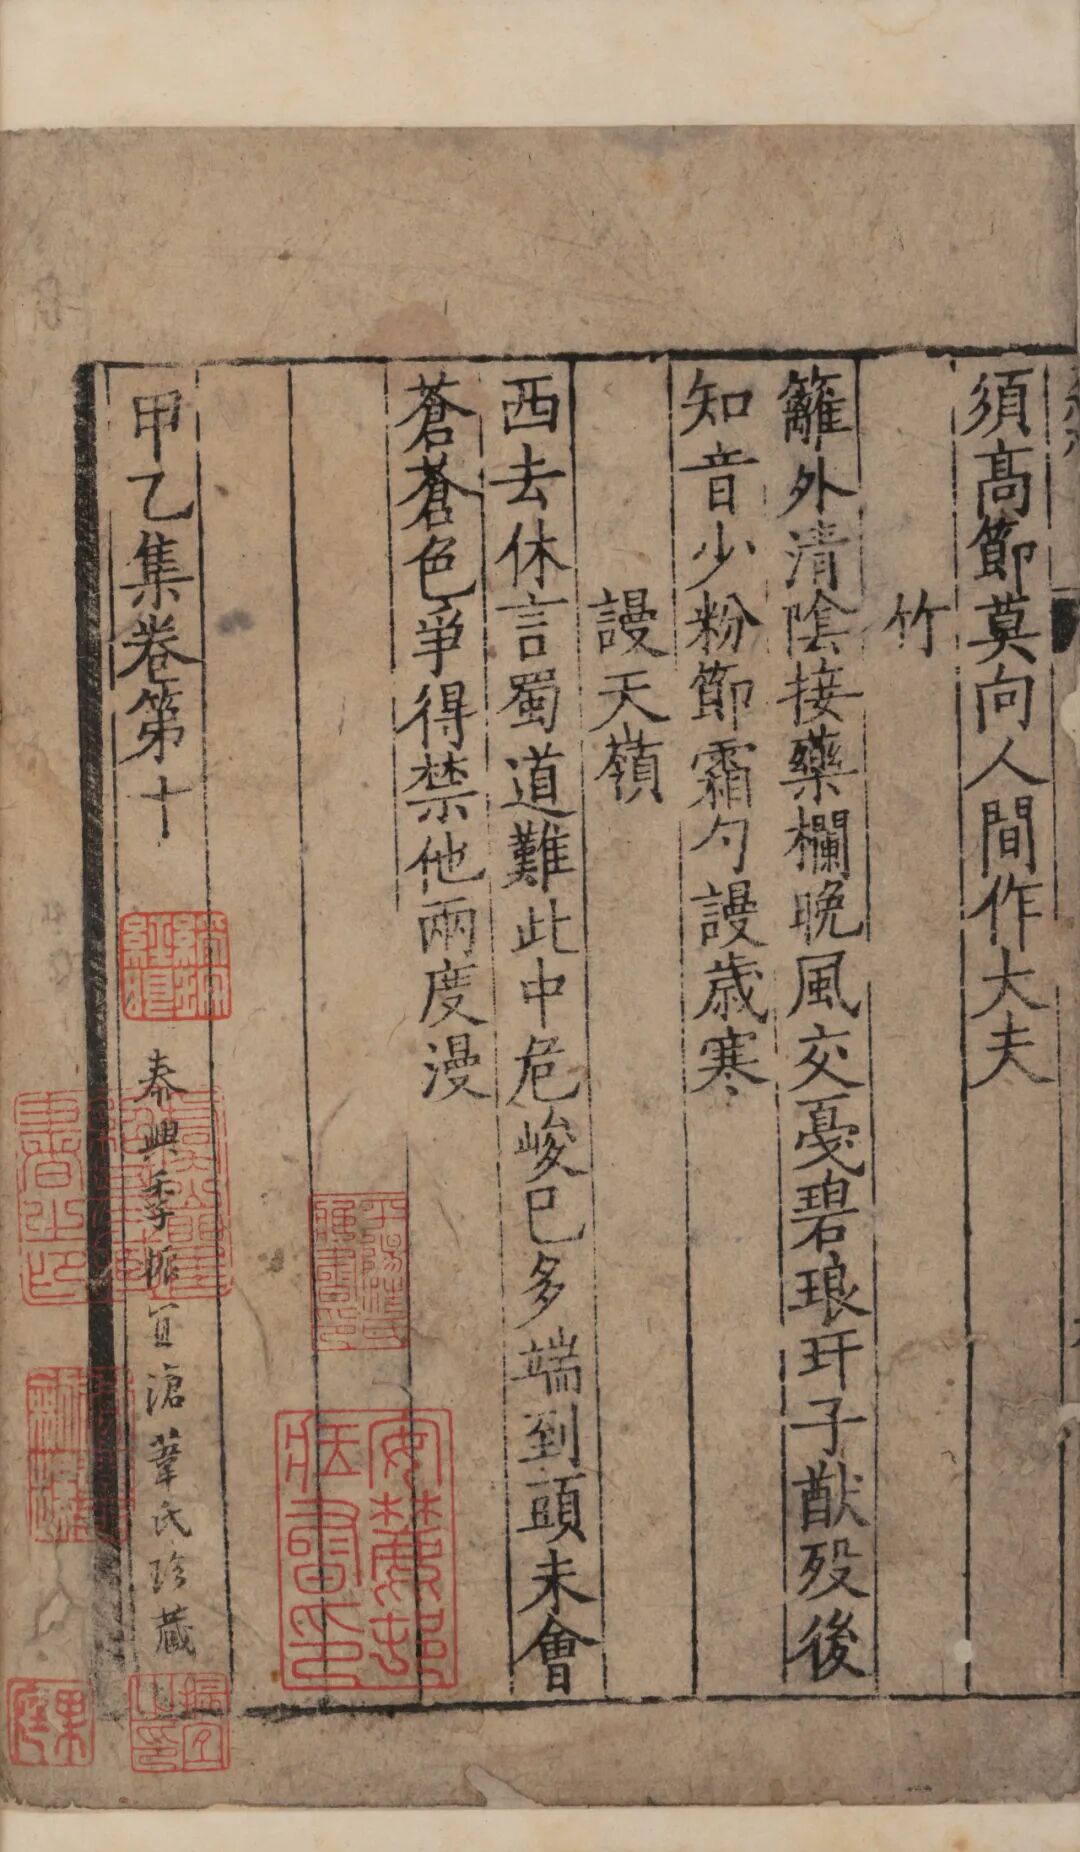 須高節莫向人間作大夫
竹
籬外清陰接藥欄晚風交戞碧琅玕子猷歿後
知音少粉節霜勻謾歲寒
謾天嶺
西去休言蜀道難此中危峻巳多端到頭未會
蒼蒼色爭得禁他兩度漫
甲乙集卷第十
泰興季振宜滄葦氏珍藏